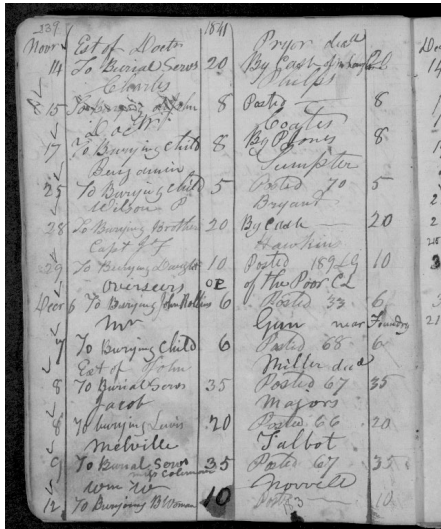 239 1841
Novr Est of Doctr Pryor decd
14 To Burial Servs 20 By Cash of 20
Charles Phelps
15 To John 8 Posted 8
Doctr Coates
17 To Burying Child 8 By Phones 8
Benjamin Sumpter
25 To Burying Child 5 Posted 70 5
Wilson P Bryant
28 To Burying Brother 20 By Cash 20
Capt J F Hawkins
29 To Burying Daught 10 Posted 189 10
Overseers OP of the Poor CL
Decr 6 To Burying John 6 Posted 33 6
Mr Gun near Foundry
7 To Burying Child 6 Posted 68 6
Est of John Miller decd
8 To Burial Servs 35 Posted 67 35
Jacob Magors
8 To burying Lewis 20 Posted 66 20
Melville Talbot
9 To Burial Servs 35 Posted 67 35
Wm W Norvell
12 To Burying B Woman 10 10